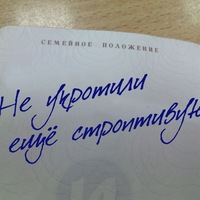 СЕМЕЙНОЕ ПОЛОЖЕНИЕ
Не укротили
ещё строптивую